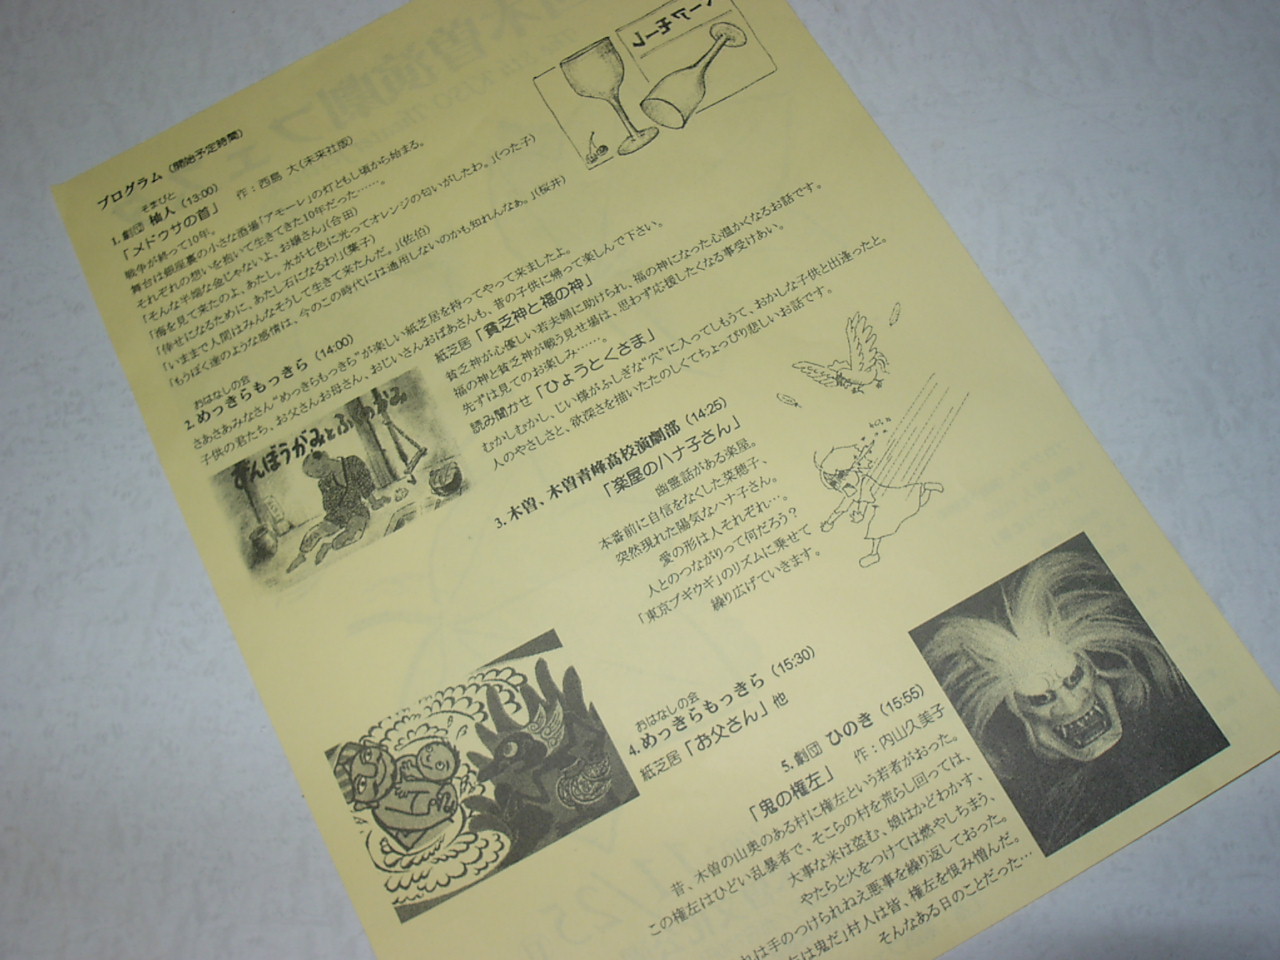 プログラム（開始予定時間）
そまびと
1. 劇団 杣人（13:00）
「メドゥサの首」 作：西島 大（未来社版）
戦争が終って10年。
舞台は銀座裏の小さな酒場「アモーレ」の灯ともし頃から始まる。
それぞれの想いを抱いて生きてきた10年だった……。
「そんな半端な金じゃないよ。お嬢さん」（合田）
「海を見て来たのよ、あたし。水が七色に光ってオレンジの匂いがしたわ。」（つた子）
「倖せになるために、あたし石になるわ！」（葉子）
「いままで人間はみんなそうして生きて来たんだ。」（佐伯）
「もうぼく達のような感情は、今のこの時代には通用しないのかも知れんなぁ。」（桜井）
おはなしの会
2. めっきらもっきら（14:00）
さあさあみなさん“めっきらもっきら”が楽しい紙芝居を持ってやって来ましたよ。
子供の君たち、お父さんお母さん、おじいさんおばあさんも、昔の子供に帰って楽しんで下さい。
紙芝居「貧乏神と福の神」
貧乏神が心優しい若夫婦に助けられ、福の神になった心温かくなるお話です。
福の神と貧乏神が戦う見せ場は、思わず応援したくなる事受けあい。
先ずは見てのお楽しみ……。
読み聞かせ「ひょうとくさま」
むかしむかし、じい様がふしぎな“穴”に入ってしもうて、おかしな子供と出逢ったと。
人のやさしさと、欲深さを描いたたのしくてちょっぴり悲しいお話です。
3. 木曽、木曽青峰高校演劇部（14:25）
「楽屋のハナ子さん」
幽霊話がある楽屋。
本番前に自信をなくした菜穂子、
突然現れた陽気なハナ子さん。
愛の形は人それぞれ…。
人とのつながりって何だろう？
「東京ブギウギ」のリズムに乗せて
繰り広げていきます。
おはなしの会
4. めっきらもっきら（15:30）
紙芝居「お父さん」他
5. 劇団 ひのき（15:55）
「鬼の権左」 作：内山久美子
昔、木曽の山奥のある村に権左という若者がおった。
この権左はひどい乱暴者で、そこらの村を荒らし回っては、
大事な米は盗む、娘はかどわかす、
やたらと火をつけては燃やしちまう、
れは手のつけられねえ悪事を繰り返しておった。
は鬼だ」村人は皆、権左を恨み憎んだ。
そんなある日のことだった…